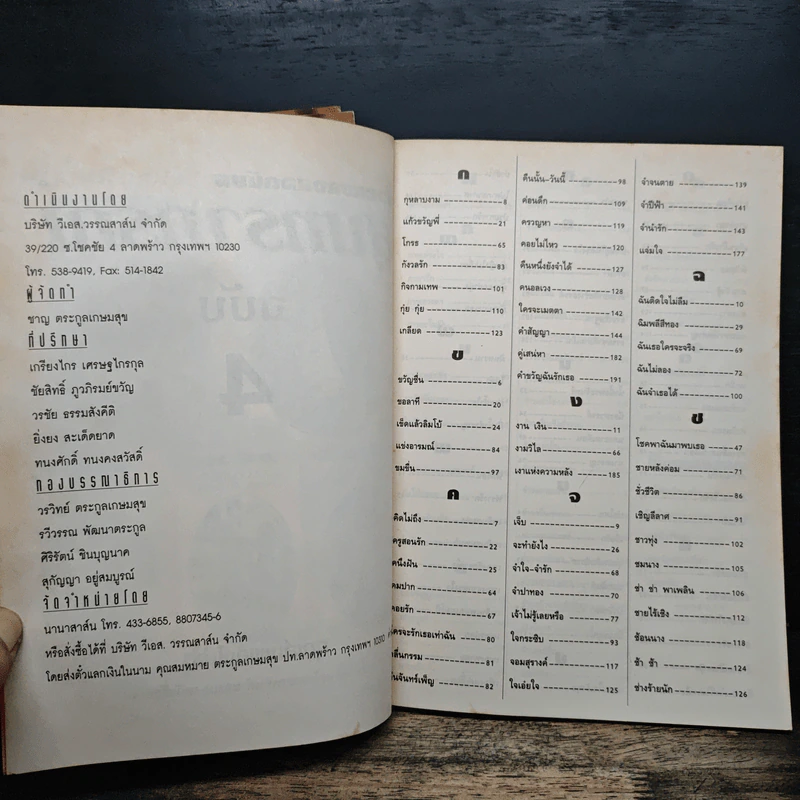 ดำเนินงานโดย
บริษัท วีเอส.วรรณสาส์น จำกัด
39/220 ซ.โชคชัย 4 ลาดพร้าว กรุงเทพฯ 10230
โทร. 538-9419, Fax: 514-1842
ผู้จัดทำ
ชาญ ตระกูลเกษมสุข
ที่ปรึกษา
เกรียงไกร เศรษฐไกรกุล
ชัยสิทธิ์ ภูวภิรมย์ขวัญ
วรชัย ธรรมสังคีติ
ยิ่งยง สะเด็ดยาด
ทนงศักดิ์ ทนงคงสวัสดิ์
กองบรรณาธิการ
วรวิทย์ ตระกูลเกษมสุข
รวีวรรณ พัฒนาตระกูล
ศิริรัตน์ ชินบุญนาค
สุกัญญา อยู่สมบูรณ์
จัดจำหน่ายโดย
นานาสาส์น โทร. 433-6855, 8807345-6
หรือสั่งซื้อได้ที่ บริษัท วีเอส. วรรณสาส์น จำกัด
โดยส่งตั๋วแลกเงินในนาม คุณสมหมาย ตระกูลเกษมสุข ปท.ลาดพร้าว กรุงเทพฯ 10310
ก
กุหลาบงาม 8
แก้วขวัญพี่ 21
โกรธ 65
กังวลรัก 83
กิจกามเทพ 101
กุ๋ย กุ่ย 110
เกลียด 123
ข
ขวัญชื่น 6
ขอลาที 20
เข็ดแล้วลิมโบ้ 24
แข่งอารมณ์ 84
ขมขื่น 97
ค
คิดไม่ถึง 7
ครูสอนรัก 22
คนึงฝัน 25
คมปาก 64
คอยรัก 67
ใครจะรักเธอเท่าฉัน 80
คลื่นกรรม 81
คืนจันทร์เพ็ญ 82
คืนนั้น-วันนี้ 98
ค่อนดึก 109
ครวญหา 119
คอยไม่ไหว 120
คืนหนึ่งยังจำได้ 127
คนอลเวง 128
ใครจะเมตตา 142
คำสัญญา 144
คู่เสน่หา 182
คำขวัญฉันรักเธอ 191
ง
งาน เงิน 11
งามวิไล 66
เงาแห่งความหลัง 185
จ
เจ็บ 9
จะทำยังไง 26
จำใจ-จำรัก 68
จำปาทอง 70
เจ้าไม่รู้เลยหรือ 77
ใจกระซิบ 93
จอมสุรางค์ 117
ใจเอ๋ยใจ 125
จำจนตาย 139
จำปีฟ้า 141
จำนำรัก 143
แจ่มใจ 177
ฉ
ฉันติดใจไม่ลืม 10
ฉิมพลีสีทอง 29
ฉันเธอใครจะจริง 69
ฉันไม่ลอง 72
ฉันจำเธอได้ 100
ช
โชคพาฉันมาพบเธอ 47
ชายหลังค่อม 71
ชั่วชีวิต 86
เชิญลีลาศ 91
ชาวทุ่ง 102
ชมนาง 105
ช่า ช่า พาเพลิน 106
ชายไร้เชิง 112
ช้อนนาง 118
ช้า ช้า 124
ช่างร้ายนัก 126